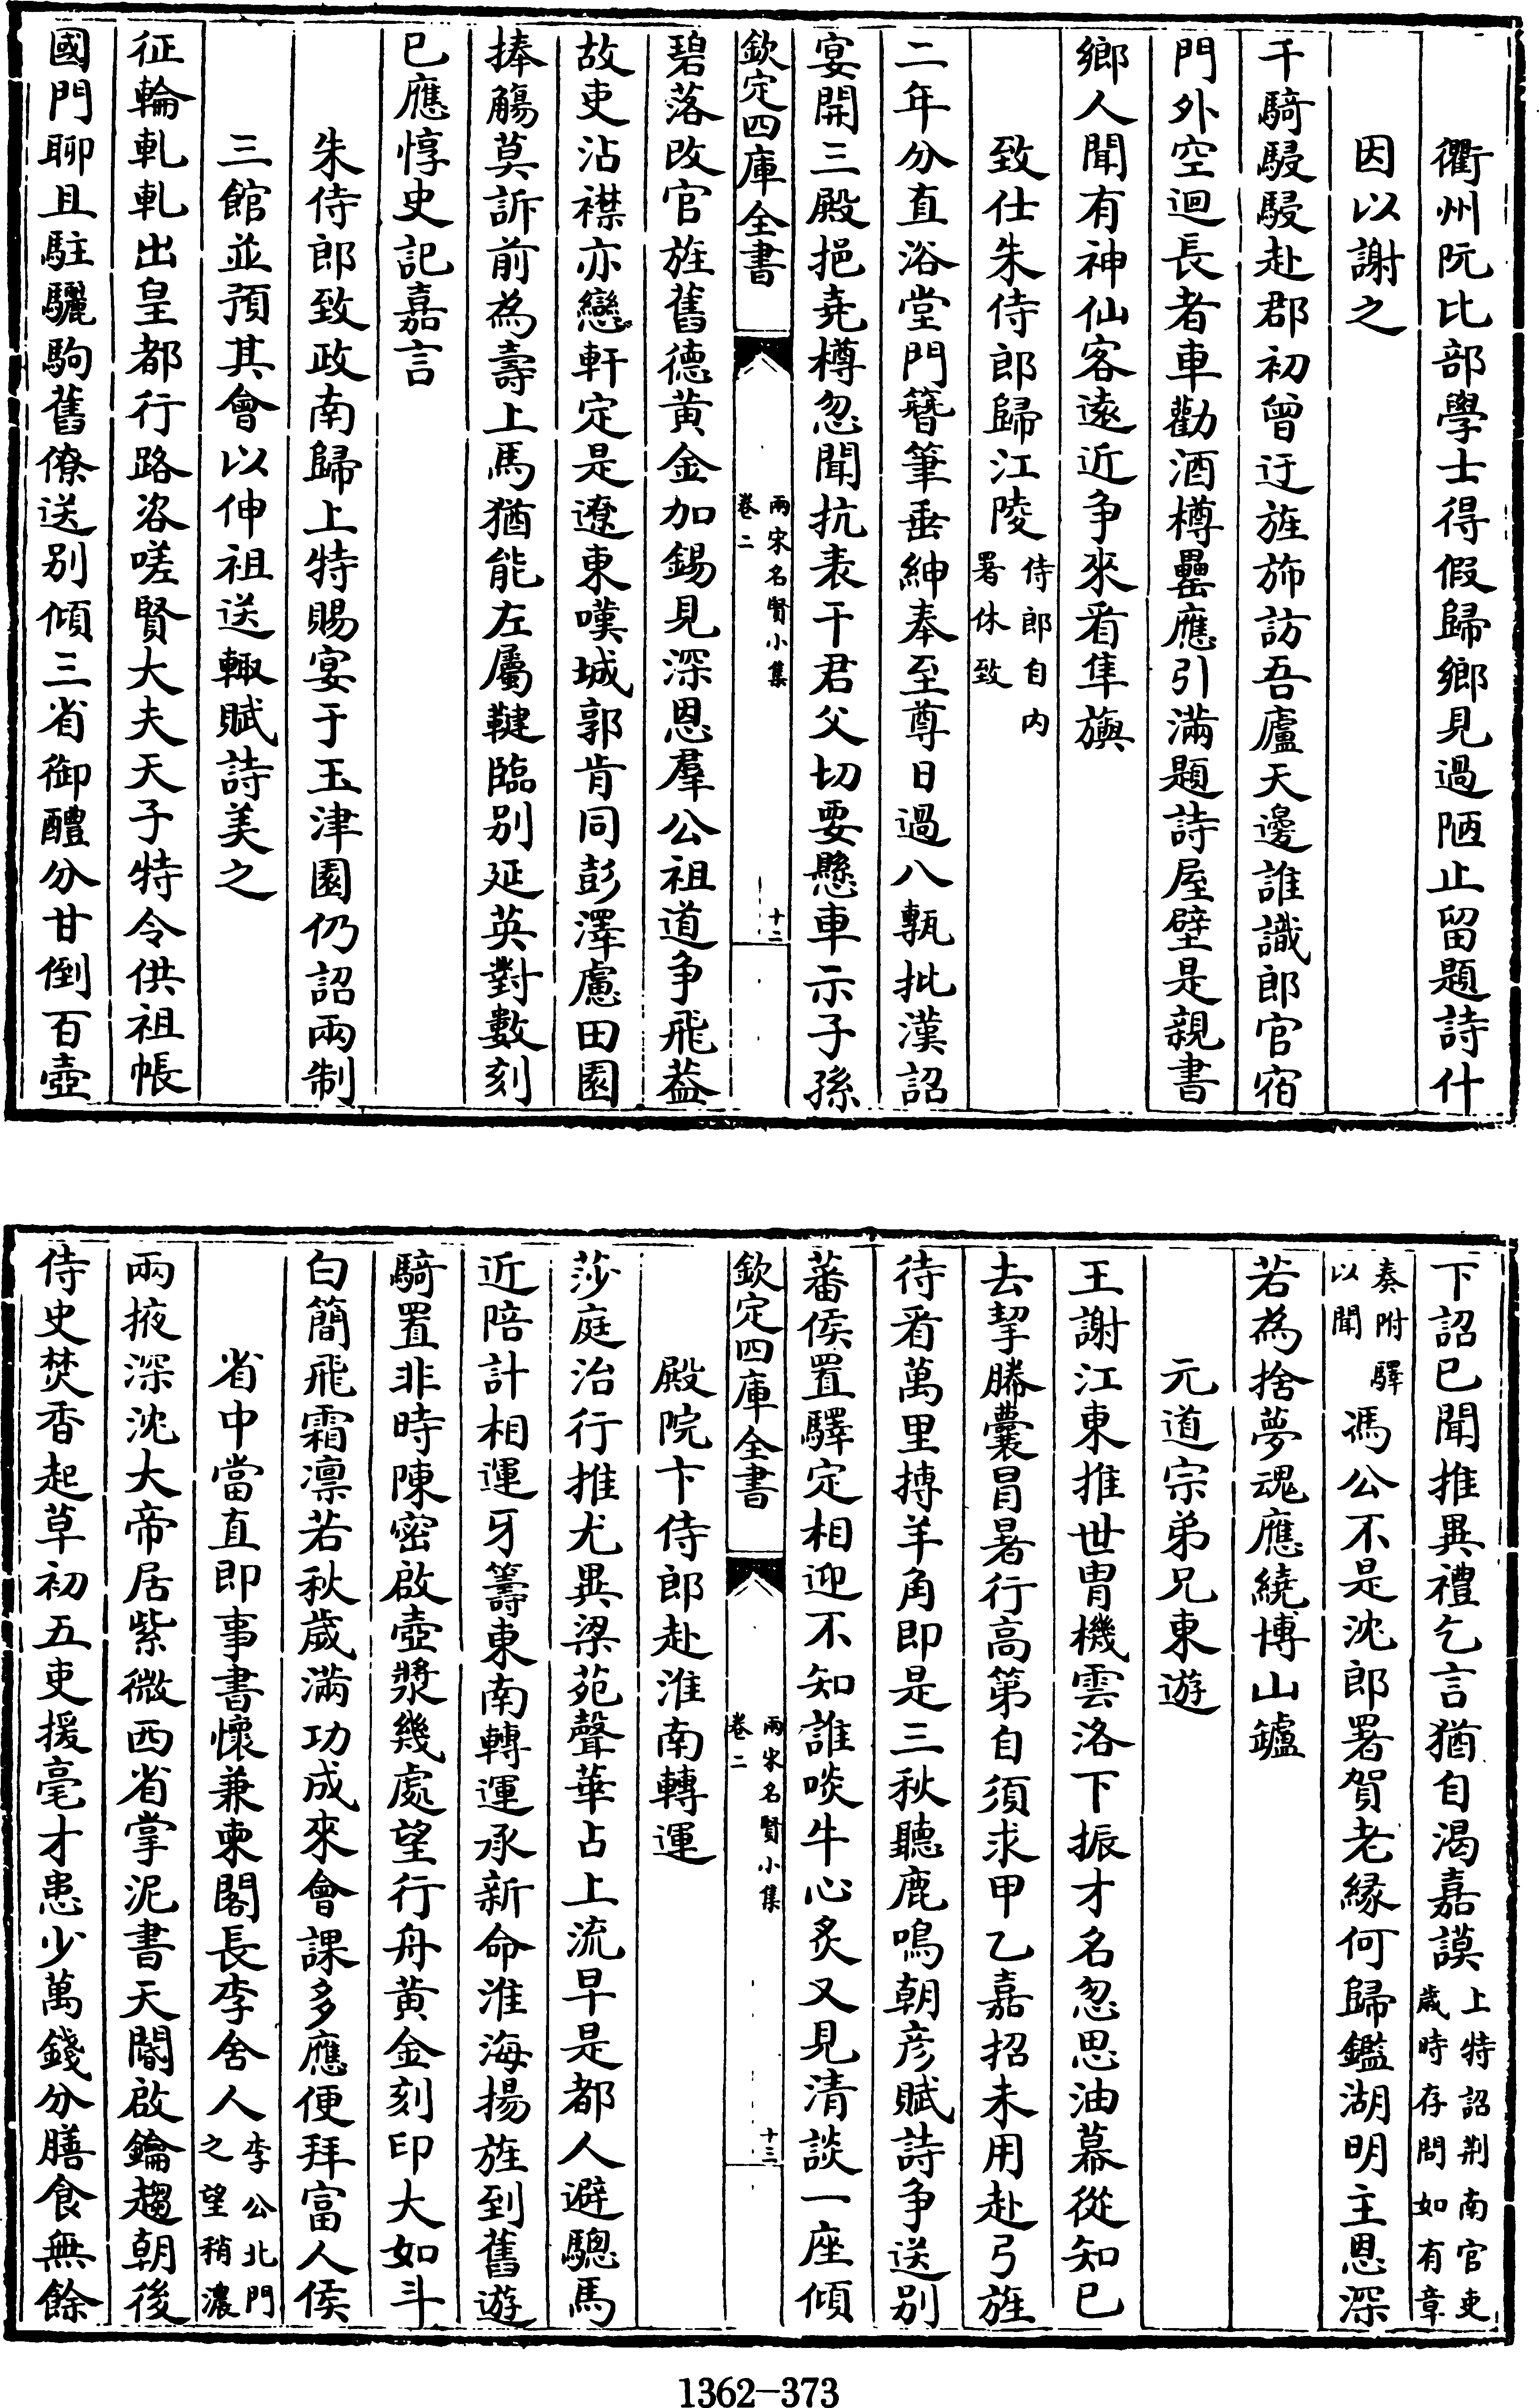 衢州阮比部學士得假歸鄉見過陋止留題詩什
因以謝之
千騎駸駸赴郡初曾迂旌斾訪吾廬天邊誰識郎官宿
門外空迴長者車勸酒樽罍應引滿題詩屋壁是親書
鄉人聞有神仙客遠近争來看隼旟
致仕朱侍郎歸江陵侍郎自内署休致
二年分直浴堂門簪筆垂紳奉至尊日過八甎批漢詔
宴開三殿挹堯樽忽聞抗表干君父切要懸車示子孫
欽定四庫全書
兩宋名賢小集
卷二
十二
碧落改官旌舊德黄金加錫見深恩羣公祖道争飛葢
故吏沾襟亦戀軒定是遼東嘆城郭肯同彭澤慮田園
捧觴莫訴前為壽上馬猶能左屬鞬臨别延英對數刻
已應惇史記嘉言
朱侍郎致政南歸上特賜宴于玉津園仍詔兩制
三館並預其會以伸祖送輙賦詩美之
征輪軋軋出皇都行路咨嗟賢大夫天子特令供祖帳
國門聊且駐驪駒舊僚送别傾三省御醴分甘倒百壺
下詔已聞推異禮乞言猶自渴嘉謨上特詔荆南官吏歲時存問如有章
奏附驛以聞馮公不是沈郎署賀老緣何歸鑑湖明主恩深
若為捨夢魂應繞博山鑪
元道宗弟兄東遊
王謝江東推世胄機雲洛下振才名忽思油幕從知已
去挈勝囊冒暑行高第自須求甲乙嘉招未用赴弓旌
待看萬里搏羊角即是三秋聽鹿鳴朝彦賦詩争送别
蕃侯置驛定相迎不知誰啖牛心炙又見清談一座傾
欽定四庫全書
兩宋名賢小集
卷二
十三
殿院卞侍郎赴淮南轉運
莎庭治行推尤異梁苑聲華占上流早是都人避驄馬
近陪計相運牙籌東南轉運承新命淮海揚旌到舊遊
騎置非時陳密啟壺漿幾處望行舟黄金刻印大如斗
白簡飛霜凛若秋歲滿功成來會課多應便拜富人侯
省中當直即事書懷兼柬閣長李舍人李公北門之望稍濃
兩掖深沈大帝居紫微西省掌泥書天閽啟鑰趨朝後
侍史焚香起草初五吏援毫才患少萬錢分膳食無餘
1362-373